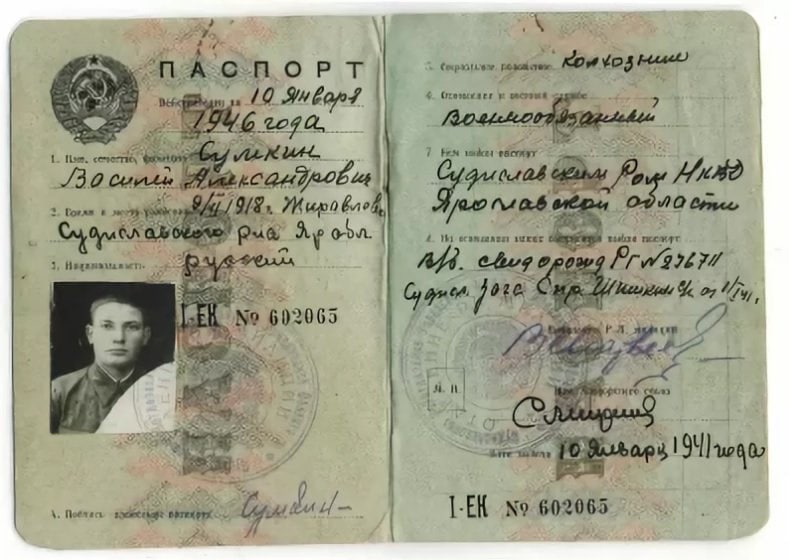 ПАСПОРТ
Действителен по 10 Января
1946 года
1. Имя, отчество, фамилия Сумкин
Василий Александрович
2. Время и место рождения 9/II 1918 г. Журавлево
Судиславского р-на Яр обл.
3. Национальность русский
I-ЕК № 602065
4. Подпись владельца паспорта Сумкин
5. Социальное положение колхозник
6. Отношение к военной службе
Военнообязанный
7. Кем выдан паспорт
Судиславским Ром НКВД
Ярославской области
8. На основании каких документов выдан паспорт
свид о рожд РГ № 276711
Судисл. Загс Спр.
М. П.
10 Января 1941 года
I-ЕК № 602065